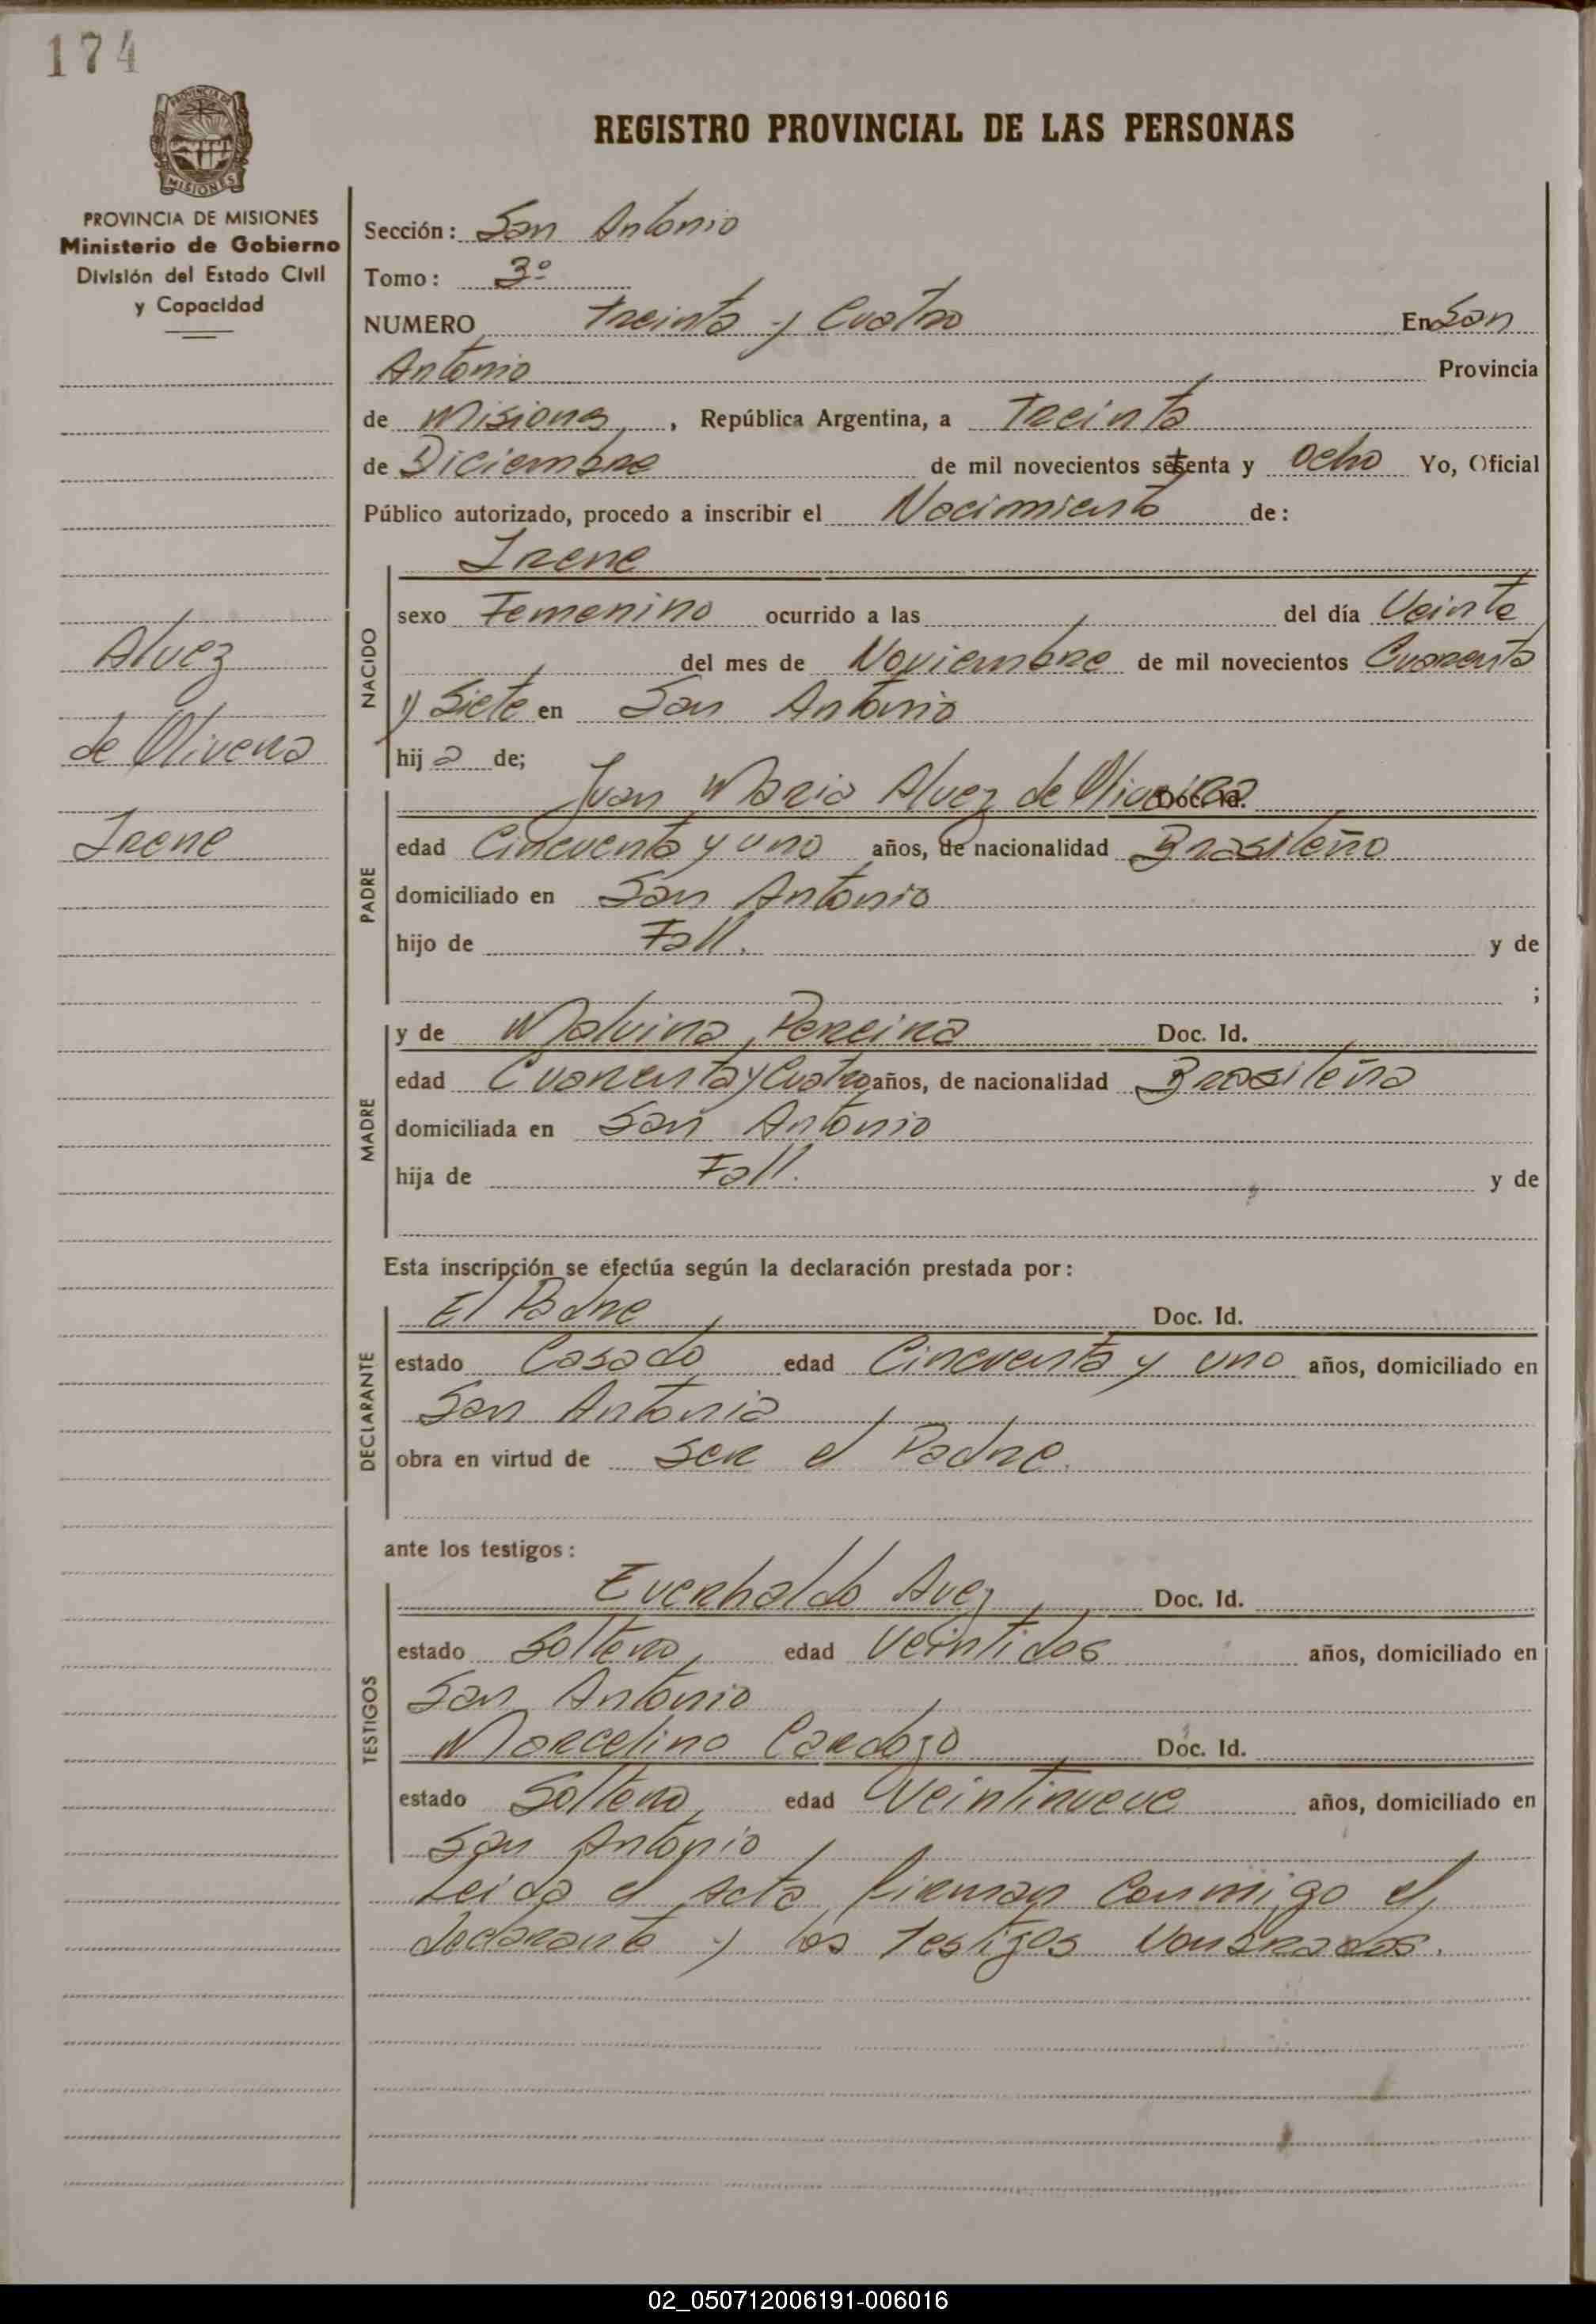 174
REGISTRO PROVINCIAL DE LAS PERSONAS
PROVINCIA DE MISIONES
Ministerio de Gobierno
División del Estado Civil
y Capacidad
Alvez
de Olivera
Irene
Sección: San Antonio
Tomo: 3º
NUMERO Treinta y Cuatro En San
Antonio Provincia
de Misiones, República Argentina, a Treinta
de Diciembre de mil novecientos setenta y Ocho Yo, Oficial
Público autorizado, procedo a inscribir el Nacimiento de:
NACIDO
Irene
sexo Femenino ocurrido a las del día Veinte
del mes de Noviembre de mil novecientos Cuarenta
y Siete en San Antonio
hija de;
PADRE
Juan Maria Alvez de Oliveira Doc. Id.
edad Cincuenta y uno años, de nacionalidad Brasileño
domiciliado en San Antonio
hijo de Fall. y de
;
MADRE
y de Malvina Pereira Doc. Id.
edad Cuarenta y Cuatro años, de nacionalidad Brasileña
domiciliada en San Antonio
hija de Fall. y de
Esta inscripción se efectúa según la declaración prestada por:
DECLARANTE
El Padre Doc. Id.
estado Casado edad Cincuenta y uno años, domiciliado en
San Antonio
obra en virtud de ser el Padre.
ante los testigos:
TESTIGOS
Everhaldo Avez Doc. Id.
estado Soltero, edad Veintidos años, domiciliado en
San Antonio
Marcelino Cardozo Doc. Id.
estado Soltero, edad Veintinueve años, domiciliado en
San Antonio
Leida el Acta, firman Conmigo el
declarante y los Testigos
02_050712006191-006016